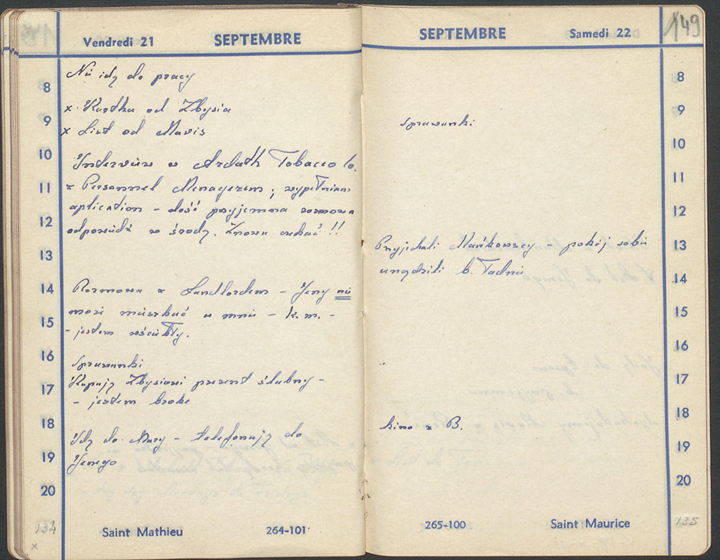 Vendredi 21 SEPTEMBRE
8
9
10
11
12
13
14
15
16
17
18
19
20
Nie idę do pracy
x Kartka od Zbysia
x List od Mavis
Interview w Ardath Tobacco Co.
z Personnel Menagerem; wypełniam
aplication – dość przyjemna rozmowa
odpowiedź w środę. Znowu czekać !!
Rozmowa z Landlordem – Jerzy nie
może mieszkać u mnie – k.m. –
– jestem wściekły.
Sprawunki
Kupuję Zbysiowi prezent ślubny –
– jestem broke
Idę do Mary – telefonuję do
Jerzego
134
x
Saint Mathieu 264-101
SEPTEMBRE Samedi 22
149
8
9
10
11
12
13
14
15
16
17
18
19
20
Sprawunki
Przyjechali Mańkowscy – pokój sobie
urządzili b. ładnie
kino z B.
265-100 Saint Maurice
135